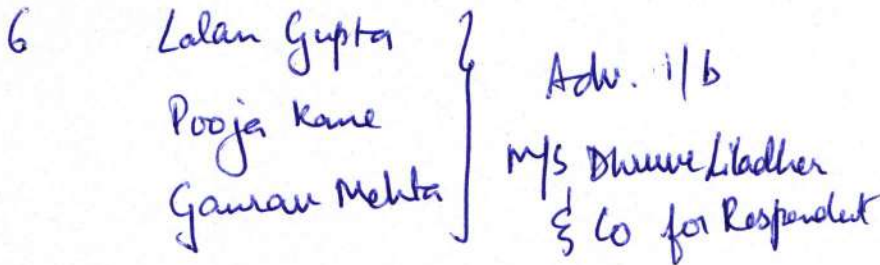 6 Lalan Gupta
Pooja Kane
Gaurav Mehta
Adv. i/b
M/S Dhruve Liladher
& Co for Respondent